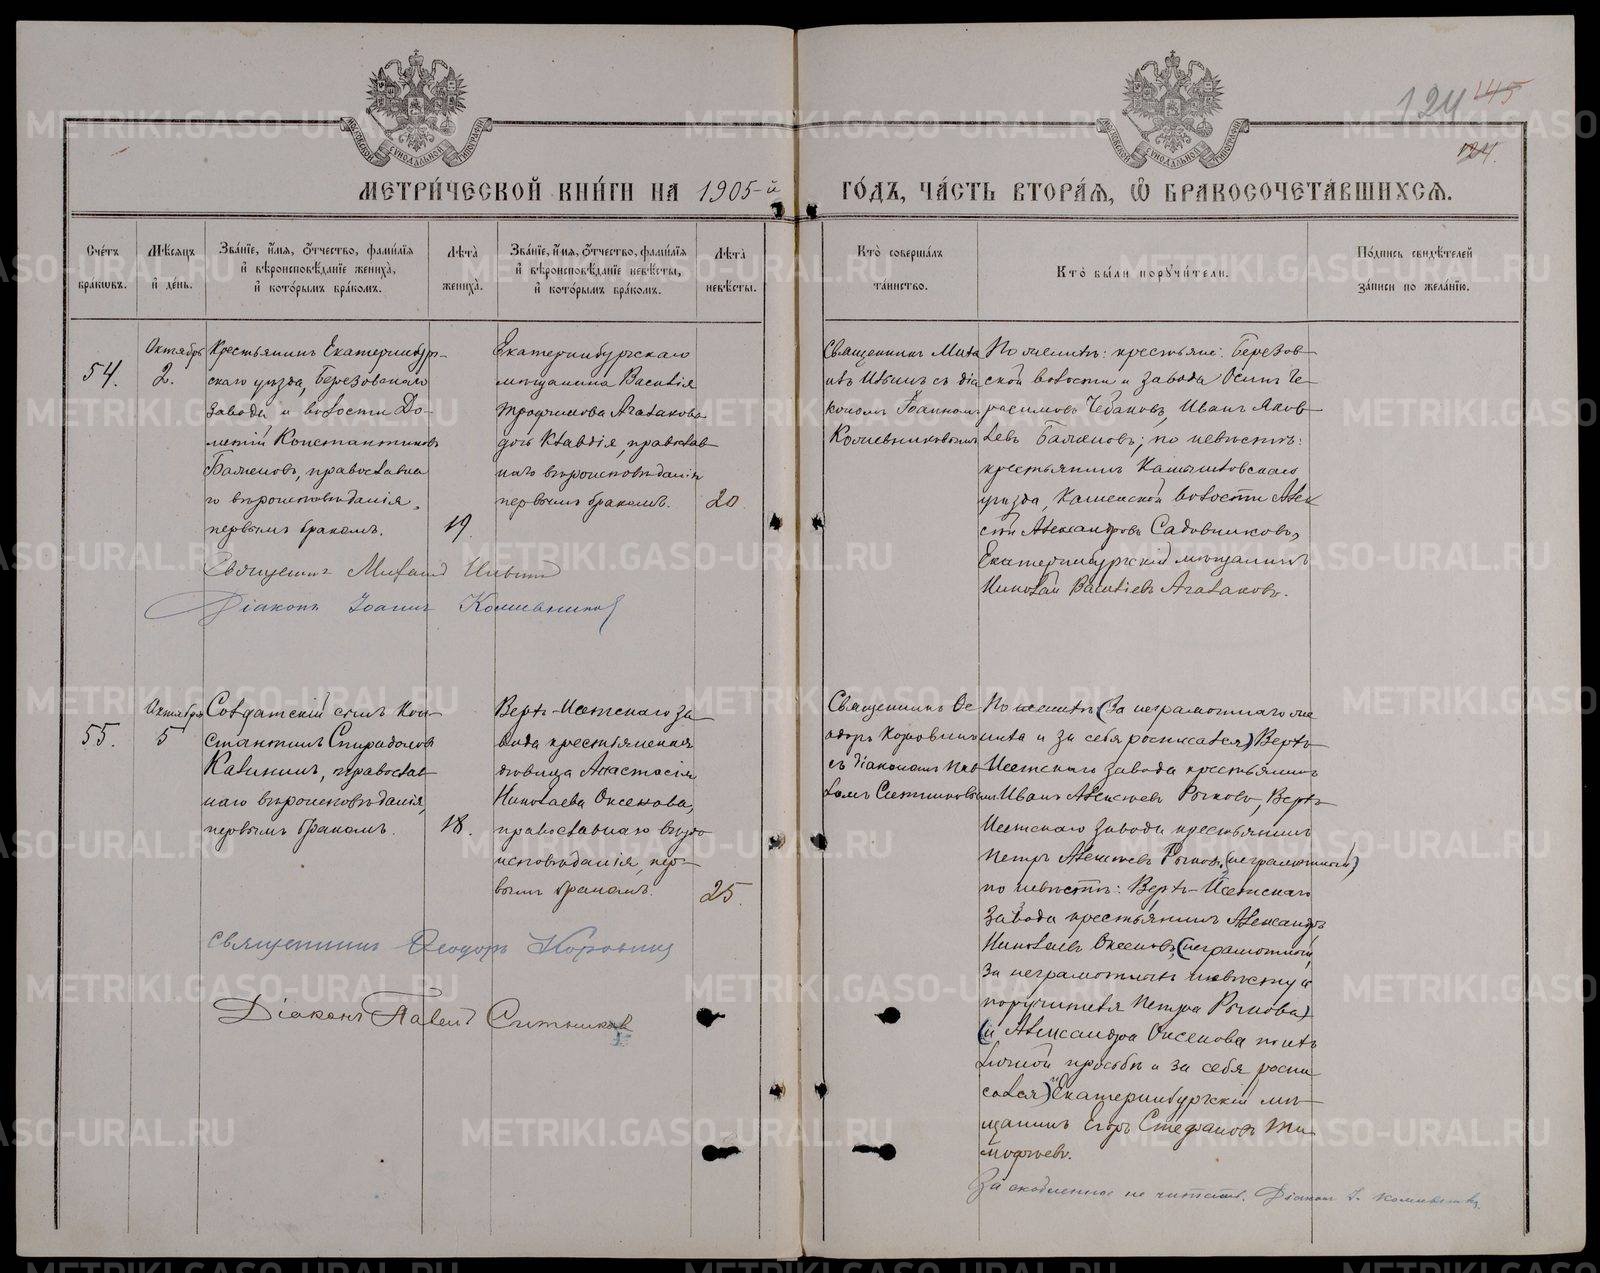 124 145
124.
МЕТРИ́ЧЕСКОЙ КНИ́ГИ НА 1905-й ГО́ДЪ, ЧА́СТЬ ВТОРА́Я, Ѿ БРАКОСОЧЕТА́ВШИХСЯ.
Сче́тъ бра́ковъ.
Мѣ́сяцъ и де́нь.
Зва́нїе, и́мя, о́тчество, фами́лїя
и вѣроисповѣ́данїе жениха̀,
и кото́рымъ бра́комъ.
Лѣта̀ жениха̀.
Зва́нїе, и́мя, о́тчество, фами́лїя
и вѣроисповѣ́данїе невѣ́сты,
и кото́рымъ бра́комъ.
Лѣта̀ невѣ́сты.
Кто̀ соверша́лъ
та́инство.
Кто̀ бы́ли поручи́тели.
По́дпись свидѣ́телей
за́писи по жела́нїю.
54.
Октябрь
2.
Крестьянинъ Екатеринбур-
скаго уѣзда, Березовскаго
завода и волости До-
метій Константиновъ
Баженовъ, православна
го вѣроисповѣданія,
первымъ бракомъ.
19.
Екатеринбургскаго
мѣщанина Василія
Трофимова Агалакова
дочь Клавдія, православ
наго вѣроисповѣданія
первымъ бракомъ.
20.
Священникъ Миха
илъ Ильинъ съ діа
кономъ Іоанномъ
По женихѣ: крестьяне: Березов-
ской волости и завода Осипъ Ге-
расимовъ Чебаковъ, Иванъ Яков-
левъ Баженовъ; по невѣстѣ:
крестьянинъ Камышловскаго
уѣзда, Каменской волости Алек
сѣй Александровъ Садовниковъ,
Екатеринбургскій мѣщанинъ
Николай Василіевъ Агалаковъ.
Священникъ Михаилъ Ильинъ
Діаконъ Іоаннъ
55.
Октябрь
5
Солдатскій сынъ Кон-
стантинъ Спиридоновъ
Калининъ, православ-
наго вѣроисповѣданія,
первымъ бракомъ.
18.
Верхъ-Исетскаго за-
вода крестьянская
дѣвица Анастасія
Николаева Оксенова,
православнаго вѣро
исповѣданія, пер-
вымъ бракомъ.
25.
Священникъ Ѳе
одоръ Коровинъ
съ діакономъ Пав
ломъ Ситниковымъ
По женихѣ: (За неграмотнаго же
ниха и за себя росписался) Верхъ-
Исетскаго завода крестьянинъ
Иванъ Алексѣевъ Рычковъ, Верхъ-
Исетскаго завода крестьянинъ
Петръ Алексѣевъ (неграмотный)
по невѣстѣ: Верхъ-Исетскаго
завода крестьянинъ Александръ
Николаевъ Оксеновъ, (неграмотный,
За неграмотныхъ невѣсту и
поручителя Петра Рычкова)
(и Александра Оксенова по ихъ
личной просьбѣ и за себя роспи
сался) Екатеринбургскій мѣ-
щанинъ Егоръ Стефановъ Ти-
мофѣевъ.
Священникъ Ѳеодоръ Коровинъ
Діаконъ Павелъ Ситниковъ
За скобленное не читать. Діаконъ І.
METRIKI.GASO-URAL.RU